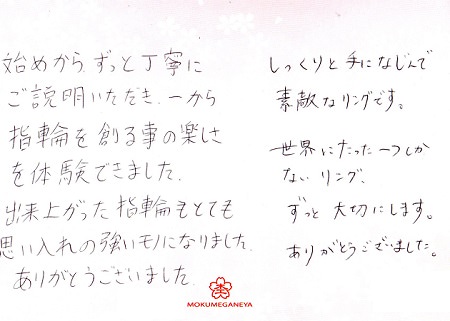 始めから、ずっと丁寧に
ご説明いただき、一から
指輪を創る事の楽しさ
を体験できました。
出来上がった指輪もとても
思い入れの強いモノになりました。
ありがとうございました。
しっくりと手になじんで
素敵なリングです。
世界にたった一つしか
ないリング、
ずっと大切にします。
ありがとうございました。
MOKUMEGANEYA